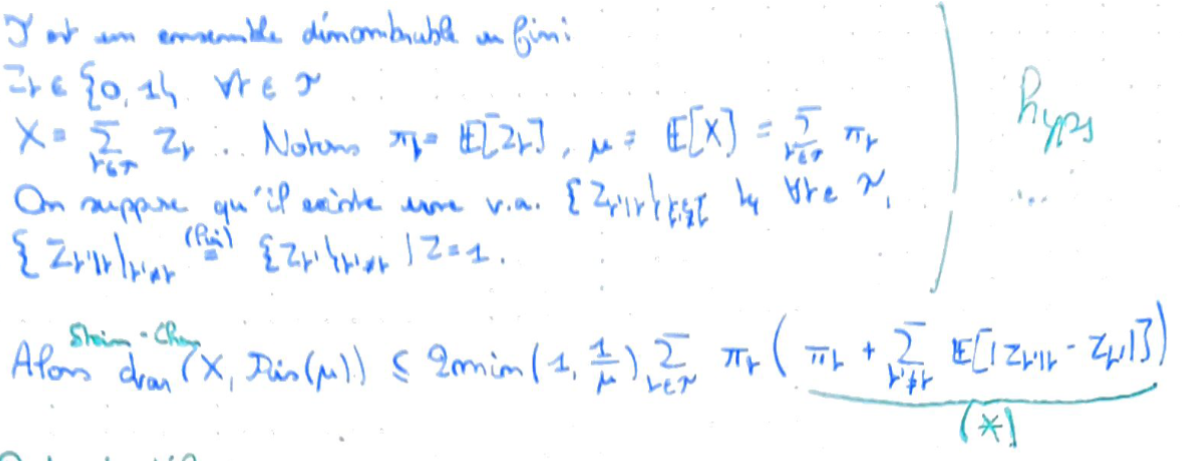 γ est un ensemble dénombrable ou fini
Z_r ∈ {0,1}, ∀r ∈ γ
X = Σ_{r∈γ} Z_r. Notons π_r = E[Z_r], μ = E[X] = Σ_{r∈γ} π_r
On suppose qu'il existe une v.a. {Z_{r'|r}} tq ∀r ∈ γ,
{Z_{r'|r}}_{r'≠r} (loi) = {Z_{r'}}_{r'≠r} | Z=1.
hyps
...
Stein-Chen
Alors d_var(X, Pois(μ)) ≤ 2min(1, 1/μ) Σ_{r∈γ} π_r (π_r + Σ_{r'≠r} E[|Z_{r'|r} - Z_{r'}|])
(*)